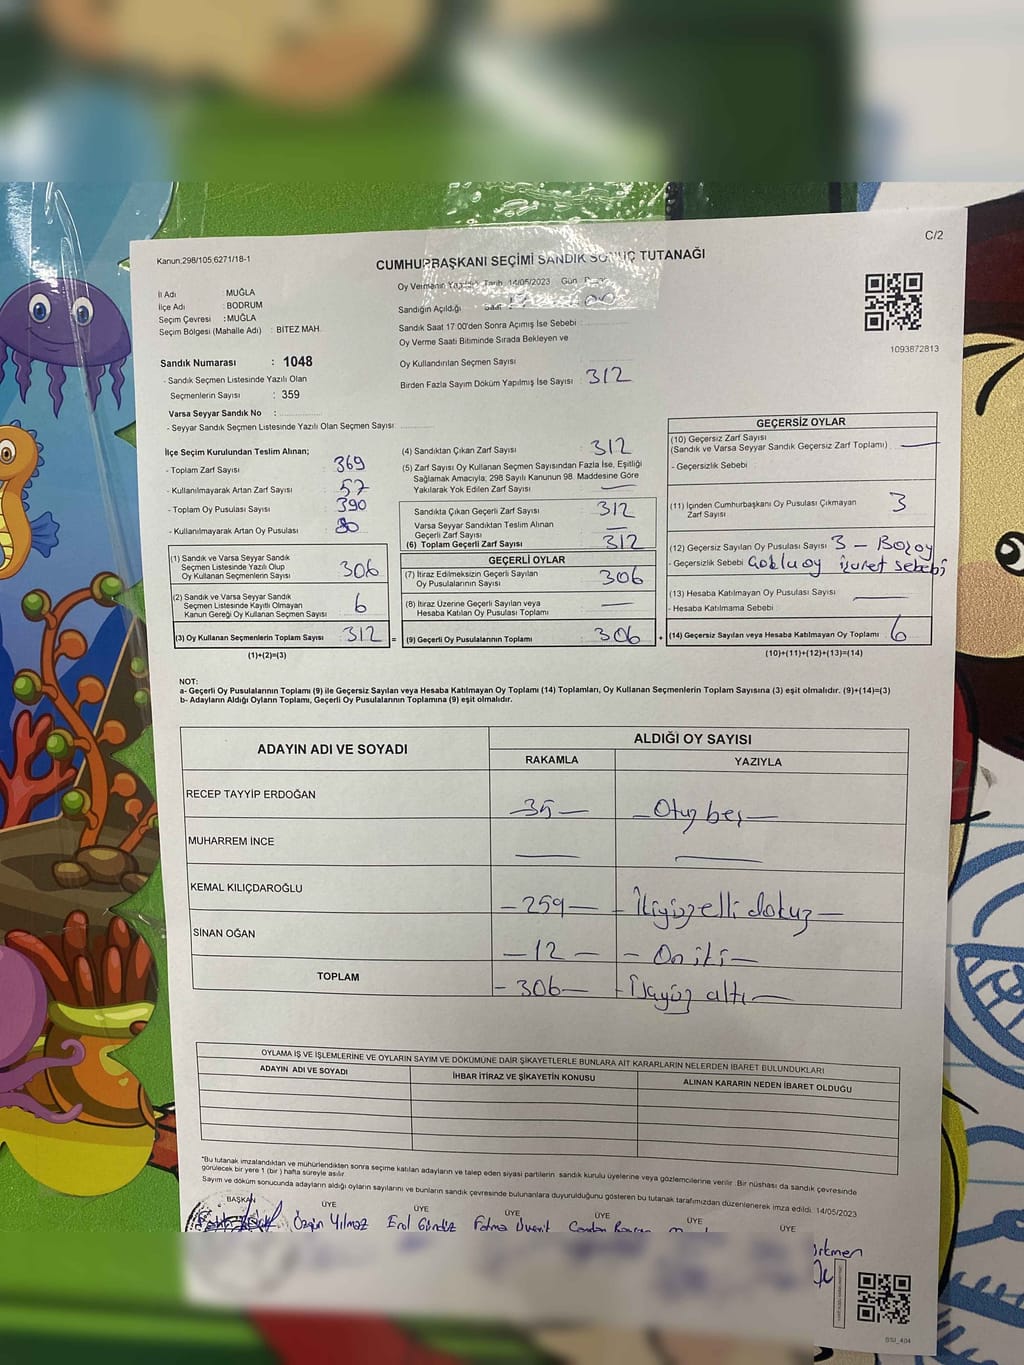 C/2
Kanun;298/105,6271/18-1
CUMHURBAŞKANI SEÇİMİ SANDIK SONUÇ TUTANAĞI
İl Adı : MUĞLA
İlçe Adı : BODRUM
Seçim Çevresi : MUĞLA
Seçim Bölgesi (Mahalle Adı) : BİTEZ MAH.
Sandık Numarası : 1048
- Sandık Seçmen Listesinde Yazılı Olan
Seçmenlerin Sayısı : 359
Varsa Seyyar Sandık No :
- Seyyar Sandık Seçmen Listesinde Yazılı Olan Seçmen Sayısı:
Oy Vermenin Tarih 14/05/2023 Gün
Sandığın Açıldığı
Sandık Saat 17.00'den Sonra Açımış İse Sebebi :
Oy Verme Saati Bitiminde Sırada Bekleyen ve
Oy Kullandırılan Seçmen Sayısı
Birden Fazla Sayım Döküm Yapılmış İse Sayısı : 312
1093872813
İlçe Seçim Kurulundan Teslim Alınan;
- Toplam Zarf Sayısı : 369
- Kullanılmayarak Artan Zarf Sayısı : 57
- Toplam Oy Pusulası Sayısı : 390
- Kullanılmayarak Artan Oy Pusulası : 80
(1) Sandık ve Varsa Seyyar Sandık
Seçmen Listesinde Yazılı Olup
Oy Kullanan Seçmenlerin Sayısı : 306
(2) Sandık ve Varsa Seyyar Sandık
Seçmen Listesinde Kayıtlı Olmayan
Kanun Gereği Oy Kullanan Seçmen Sayısı : 6
(3) Oy Kullanan Seçmenlerin Toplam Sayısı : 312 =
(1)+(2)=(3)
(4) Sandıktan Çıkan Zarf Sayısı : 312
(5) Zarf Sayısı Oy Kullanan Seçmen Sayısından Fazla İse, Eşitliği
Sağlamak Amacıyla; 298 Sayılı Kanunun 98. Maddesine Göre
Yakılarak Yok Edilen Zarf Sayısı : —
Sandıkta Çıkan Geçerli Zarf Sayısı : 312
Varsa Seyyar Sandıktan Teslim Alınan
Geçerli Zarf Sayısı : —
(6) Toplam Geçerli Zarf Sayısı : 312
GEÇERLİ OYLAR
(7) İtiraz Edilmeksizin Geçerli Sayılan
Oy Pusulalarının Sayısı : 306
(8) İtiraz Üzerine Geçerli Sayılan veya
Hesaba Katılan Oy Pusulası Toplamı : —
(9) Geçerli Oy Pusulalarının Toplamı : 306 +
GEÇERSİZ OYLAR
(10) Geçersiz Zarf Sayısı
(Sandık ve Varsa Seyyar Sandık Geçersiz Zarf Toplamı) : —
- Geçersizlik Sebebi
(11) İçinden Cumhurbaşkanı Oy Pusulası Çıkmayan
Zarf Sayısı : 3
(12) Geçersiz Sayılan Oy Pusulası Sayısı : 3 –
- Geçersizlik Sebebi sebebi
(13) Hesaba Katılmayan Oy Pusulası Sayısı : —
- Hesaba Katılmama Sebebi
(14) Geçersiz Sayılan veya Hesaba Katılmayan Oy Toplamı : 6
(10)+(11)+(12)+(13)=(14)
NOT:
a- Geçerli Oy Pusulalarının Toplamı (9) ile Geçersiz Sayılan veya Hesaba Katılmayan Oy Toplamı (14) Toplamları, Oy Kullanan Seçmenlerin Toplam Sayısına (3) eşit olmalıdır. (9)+(14)=(3)
b- Adayların Aldığı Oyların Toplamı, Geçerli Oy Pusulalarının Toplamına (9) eşit olmalıdır.
ADAYIN ADI VE SOYADI ALDIĞI OY SAYISI
RAKAMLA YAZIYLA
RECEP TAYYİP ERDOĞAN —35— —Otuz beş—
MUHARREM İNCE — —
KEMAL KILIÇDAROĞLU —259— —İkiyüzelli dokuz—
SİNAN OĞAN —12— —On iki—
TOPLAM —306— —Üçyüz altı—
OYLAMA İŞ VE İŞLEMLERİNE VE OYLARIN SAYIM VE DÖKÜMÜNE DAİR ŞİKAYETLERLE BUNLARA AİT KARARLARIN NELERDEN İBARET BULUNDUKLARI
ADAYIN ADI VE SOYADI İHBAR İTİRAZ VE ŞİKAYETİN KONUSU ALINAN KARARIN NEDEN İBARET OLDUĞU
*Bu tutanak imzalandıktan ve mühürlendikten sonra seçime katılan adayların ve talep eden siyasi partilerin sandık kurulu üyelerine veya gözlemcilerine verilir. Bir nüshası da sandık çevresinde
görülecek bir yere 1 (bir) hafta süreyle asılır.
Sayım ve döküm sonucunda adayların aldığı oyların sayılarını ve bunların sandık çevresinde bulunanlara duyurulduğunu gösteren bu tutanak tarafımızdan düzenlenerek imza edildi. 14/05/2023
BAŞKAN ÜYE ÜYE ÜYE ÜYE ÜYE ÜYE
Özgün Yılmaz Erol Gündüz Fatma